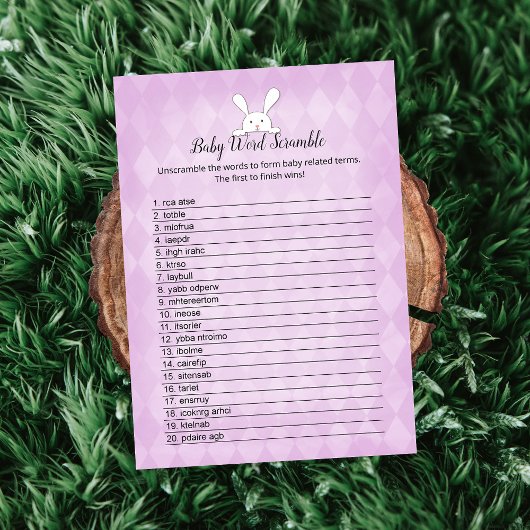 Baby Word Scramble
Unscramble the words to form baby related terms.
The first to finish wins!
1. rca atse
2. totble
3. mlofrua
4. iaepdr
5. ihgh irahc
6. ktrso
7. laybull
8. yabb odperw
9. mhtereertom
10. ineose
11. itsorier
12. yoba ntroimo
13. ibolme
14. cairefip
15. sitensab
16. tarlet
17. ensrruy
18. icoknrg arhci
19. ktelnab
20. pdaire agb